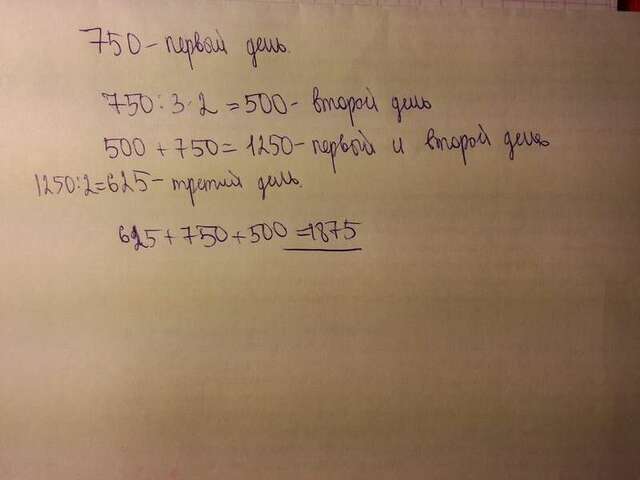 750 - первой день.
750 : 3 · 2 = 500 - второй день
500 + 750 = 1250 - первый и второй день
1250:2=625 - третий день.
625 + 750 + 500 = 1875